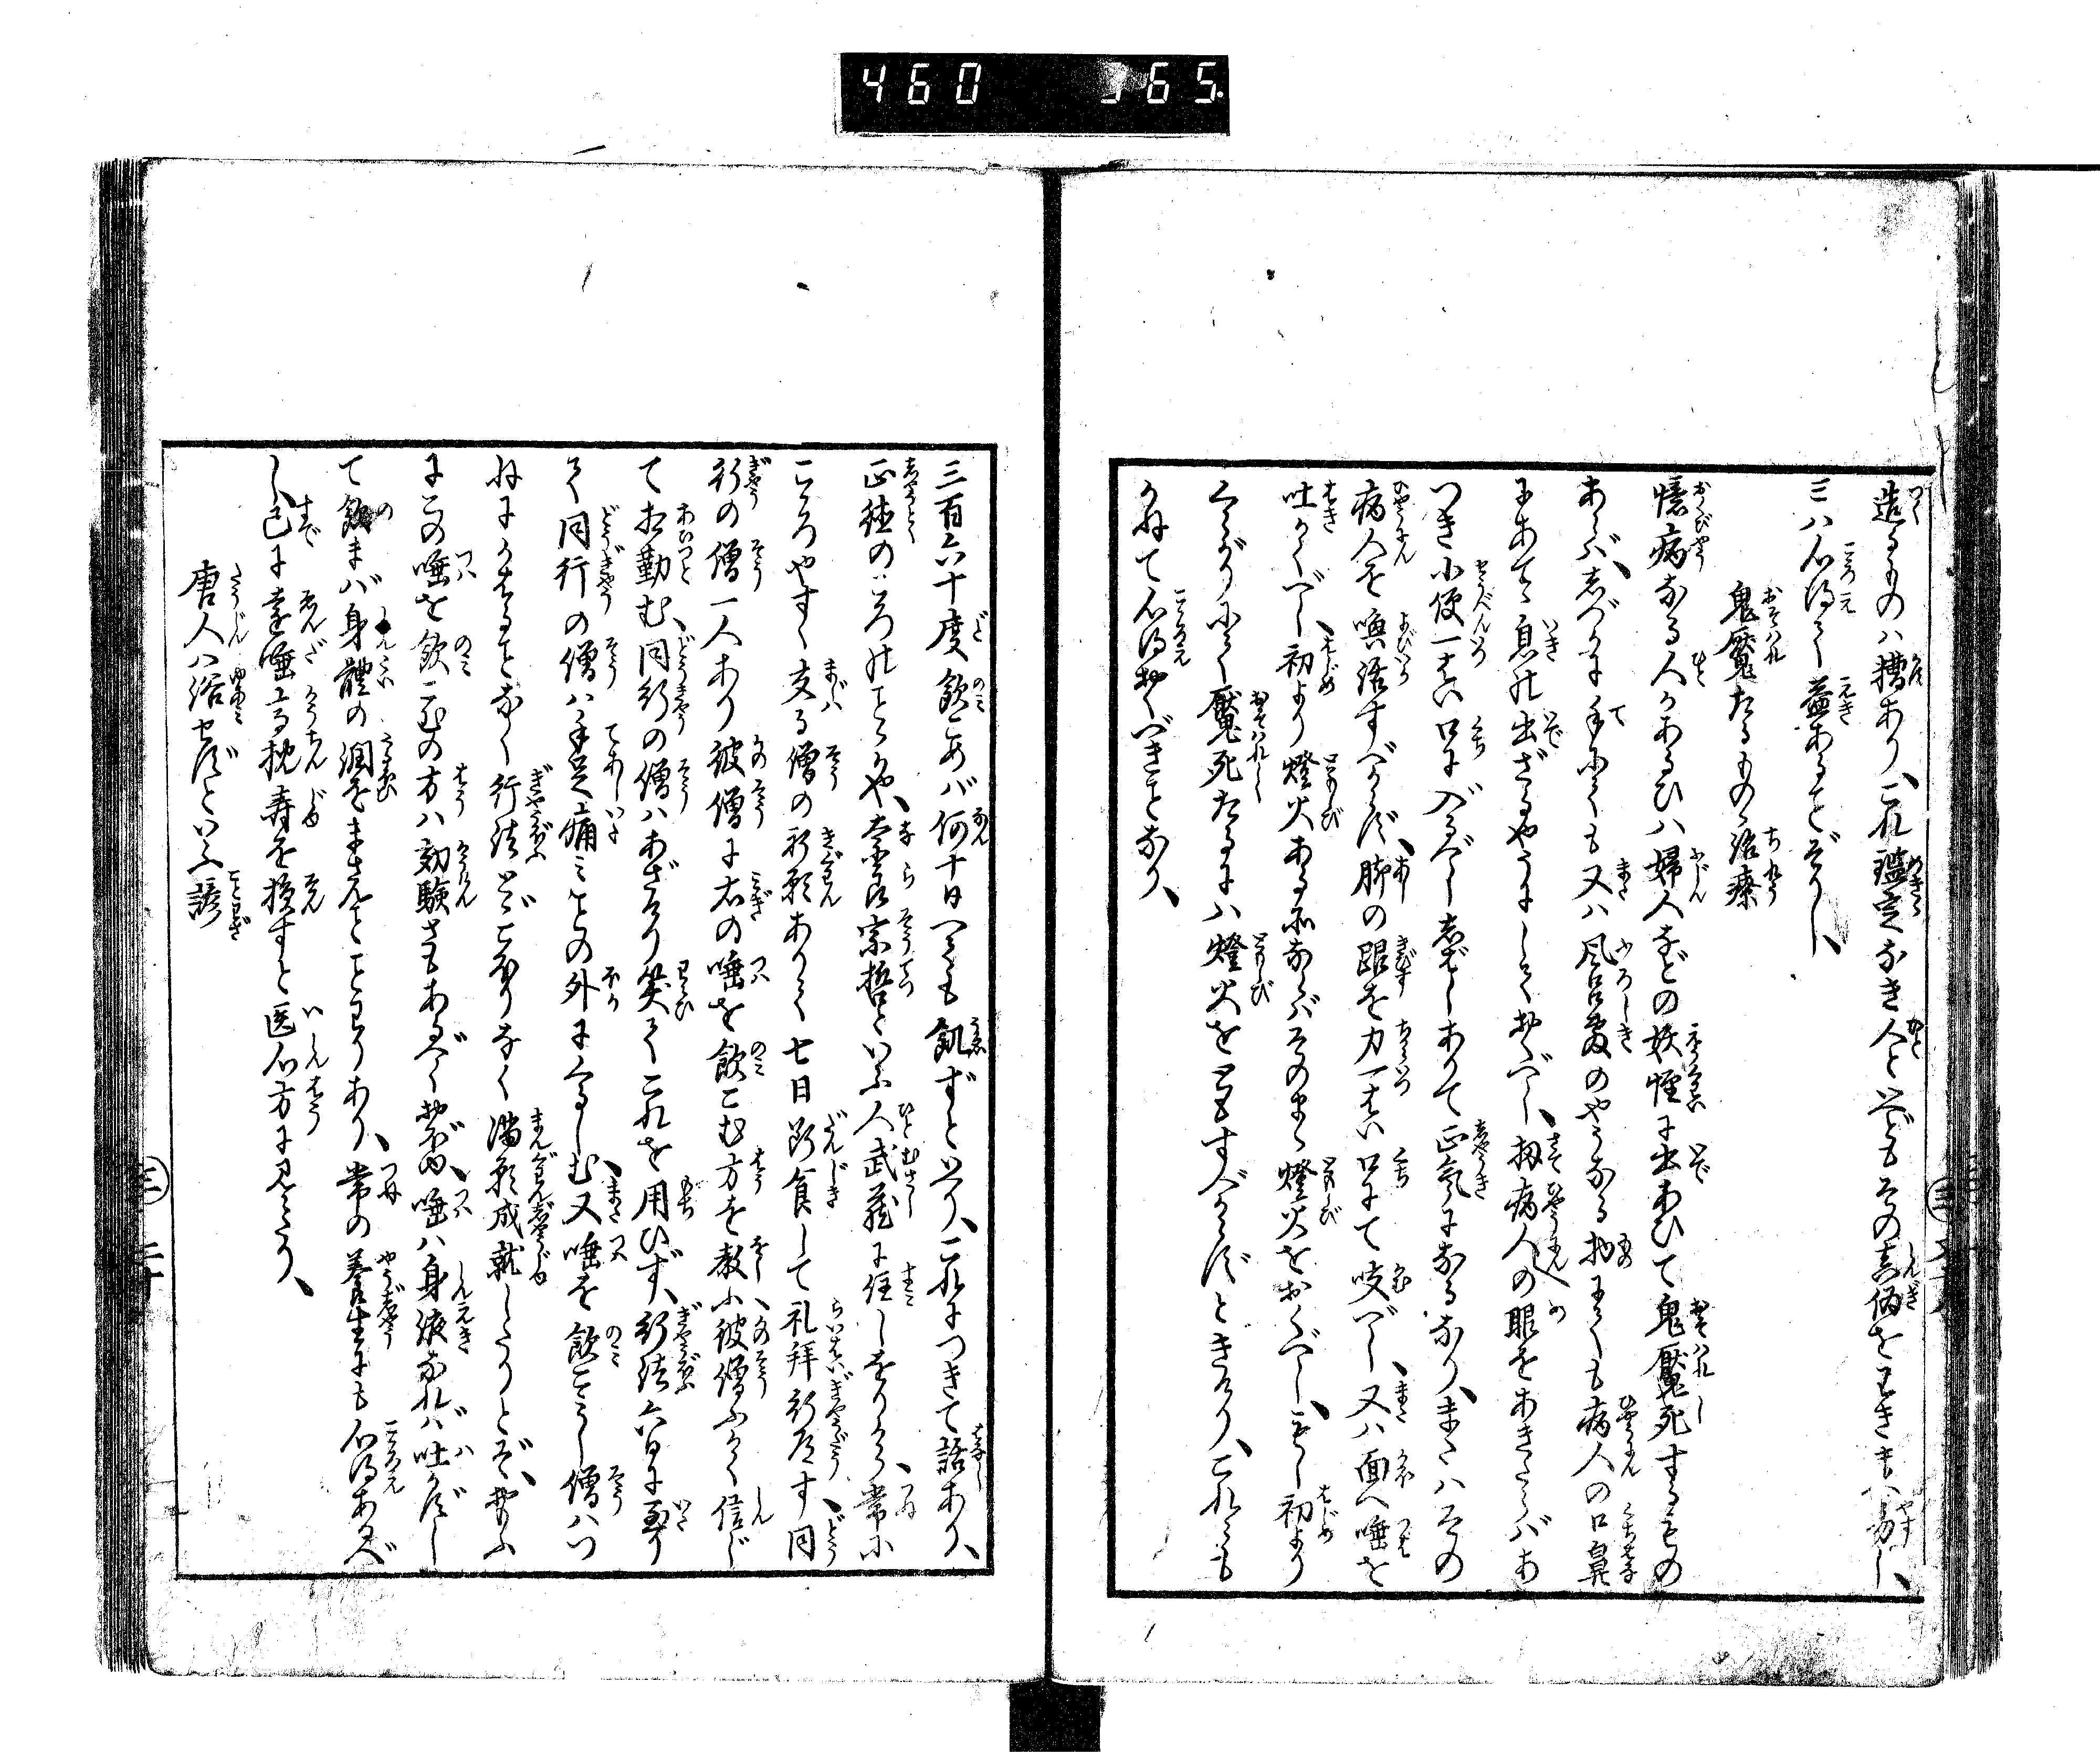 460 365.
造るものハ糟あり、これ鑑定なき人といへどもその真偽をわきまへ易し、
三ハ心得て益あることぞかし、
鬼魘たるもの治療
憶病なる人かあるひハ婦人などの妖怪に出あひて鬼魘死するもの
あらバ、しづかに手にても又ハ風呂敷のやうなる物にても病人の口鼻
にあてゝ息の出ざるやうにしておくべし、扨病人の眼をあきたらバあ
つき小便一はい口に入るべししばしありて正気になるなり、またハその
病人を喚活すべからず、脚の跟を力一はい口にて咬べし、又ハ面へ唾を
吐かくべし、初より燈火ある所ならバそのまゝ燈火をおくべし、もし初より
くらがりにて魘死たるにハ燈火をともすべからずときけり、これらも
かねて心得おくべきことなり、
三百六十度飲こめバ何十日へても飢ずといへり、これにつきて話あり、
正徳のころのことかや、奈良宗哲といふ人武蔵に住しをりける、常に
こゝろやすく交る僧の祈願ありて七日断食して礼拝行道す同
行の僧一人あり彼僧に右の唾を飲こむ方を教ふ彼僧ふかく信じ
て相勤む、同行の僧ハあざけり笑てこれを用ひず、行法六日に至り
て同行の僧ハ手足痛ミことの外にくるしむ、又唾を飲こミし僧ハつ
ねにかはることなく行法とゞこほりなく満願成就したりとぞ、おもふ
にこの唾を飲こむの方ハ効験さもあるべくおぼゆ、唾ハ身液なれバ吐かずし
て飲まバ身體の潤をまさんことことわりあり、常の養生にも心得あるべ
し、已に遠唾高枕寿を損すと医心方に見えたり、
唐人ハ浴せずといふ諺